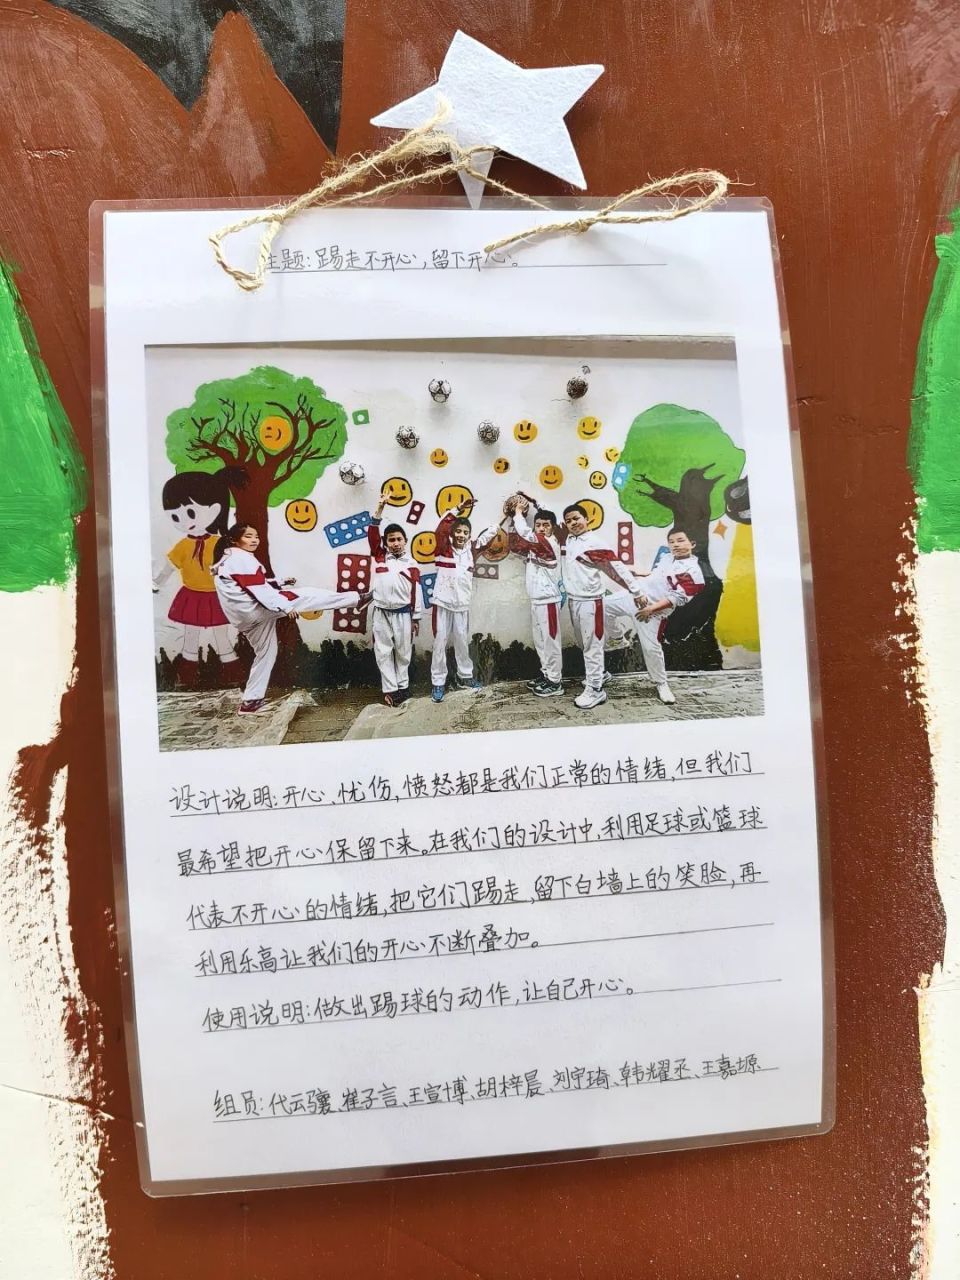 主题:踢走不开心,留下开心。
设计说明:开心、忧伤,愤怒都是我们正常的情绪,但我们
最希望把开心保留下来。在我们的设计中,利用足球或篮球
代表不开心的情绪,把它们踢走,留下白墙上的笑脸,再
利用乐高让我们的开心不断叠加。
使用说明:做出踢球的动作,让自己开心。
组员:代云骧、崔子言、王宣博、胡梓晨、刘宇琦、韩耀丞、王嘉塬